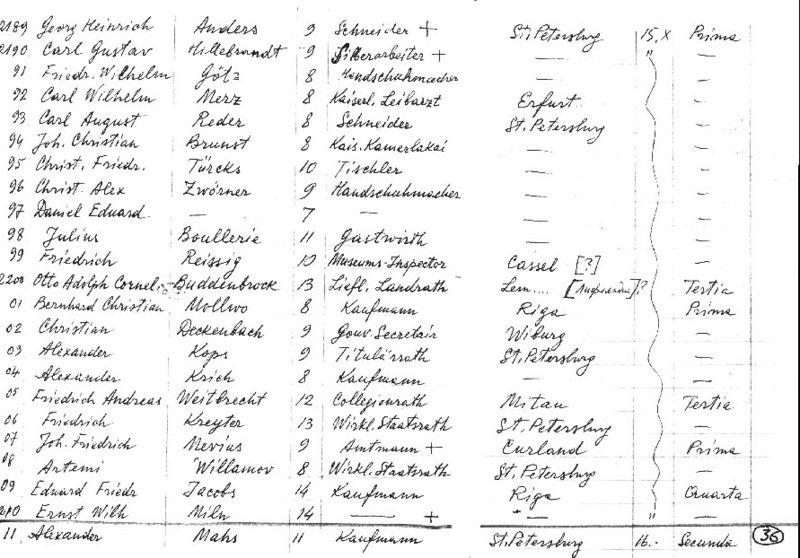 2189 Georg Heinrich Anders 9 Schneider + St. Petersburg 15. X Prima
2190 Carl Gustav Hildebrandt 9 Silberarbeiter + — " —
91 Friedr. Wilhelm Götz 8 Handschuhmacher — —
92 Carl Wilhelm Merz 8 Kaiserl. Leibarzt Erfurt —
93 Carl August Reder 8 Schneider St. Petersburg —
94 Joh. Christian Brunst 8 Kais. Kamerlakai — —
95 Christ. Friedr. Türcks 10 Tischler — —
96 Christ. Alex Zwörner 9 Handschuhmacher — —
97 Daniel Eduard — 7 — — —
98 Julius Boullerie 11 Gastwirth — —
99 Friedrich Reissig 10 Museums-Inspector Cassel [?] —
2200 Otto Adolph Cornel. Buddenbrock 13 Liefl. Landrath Lem.... ? Tertia
01 Bernhard Christian Mollwo 8 Kaufmann Riga Prima
02 Christian Deckenbach 9 Gouv. Secretair Wiburg —
03 Alexander Kops 9 Titulärrath St. Petersburg —
04 Alexander Krich 8 Kaufmann — —
05 Friedrich Andreas Weitbrecht 12 Collegienrath Mitau Tertia
06 Friedrich Kreyter 13 Wirkl. Staatsrath St. Petersburg —
07 Joh. Friedrich Mevius 9 Amtmann + Curland Prima
08 Artemi Willamov 8 Wirkl. Staatsrath St. Petersburg —
09 Eduard Friedr Jacobs 14 Kaufmann Riga Quarta
2210 Ernst Wilh Miln 14 — + — " —
11 Alexander Mahs 11 Kaufmann St. Petersburg 16.- Secunda 36